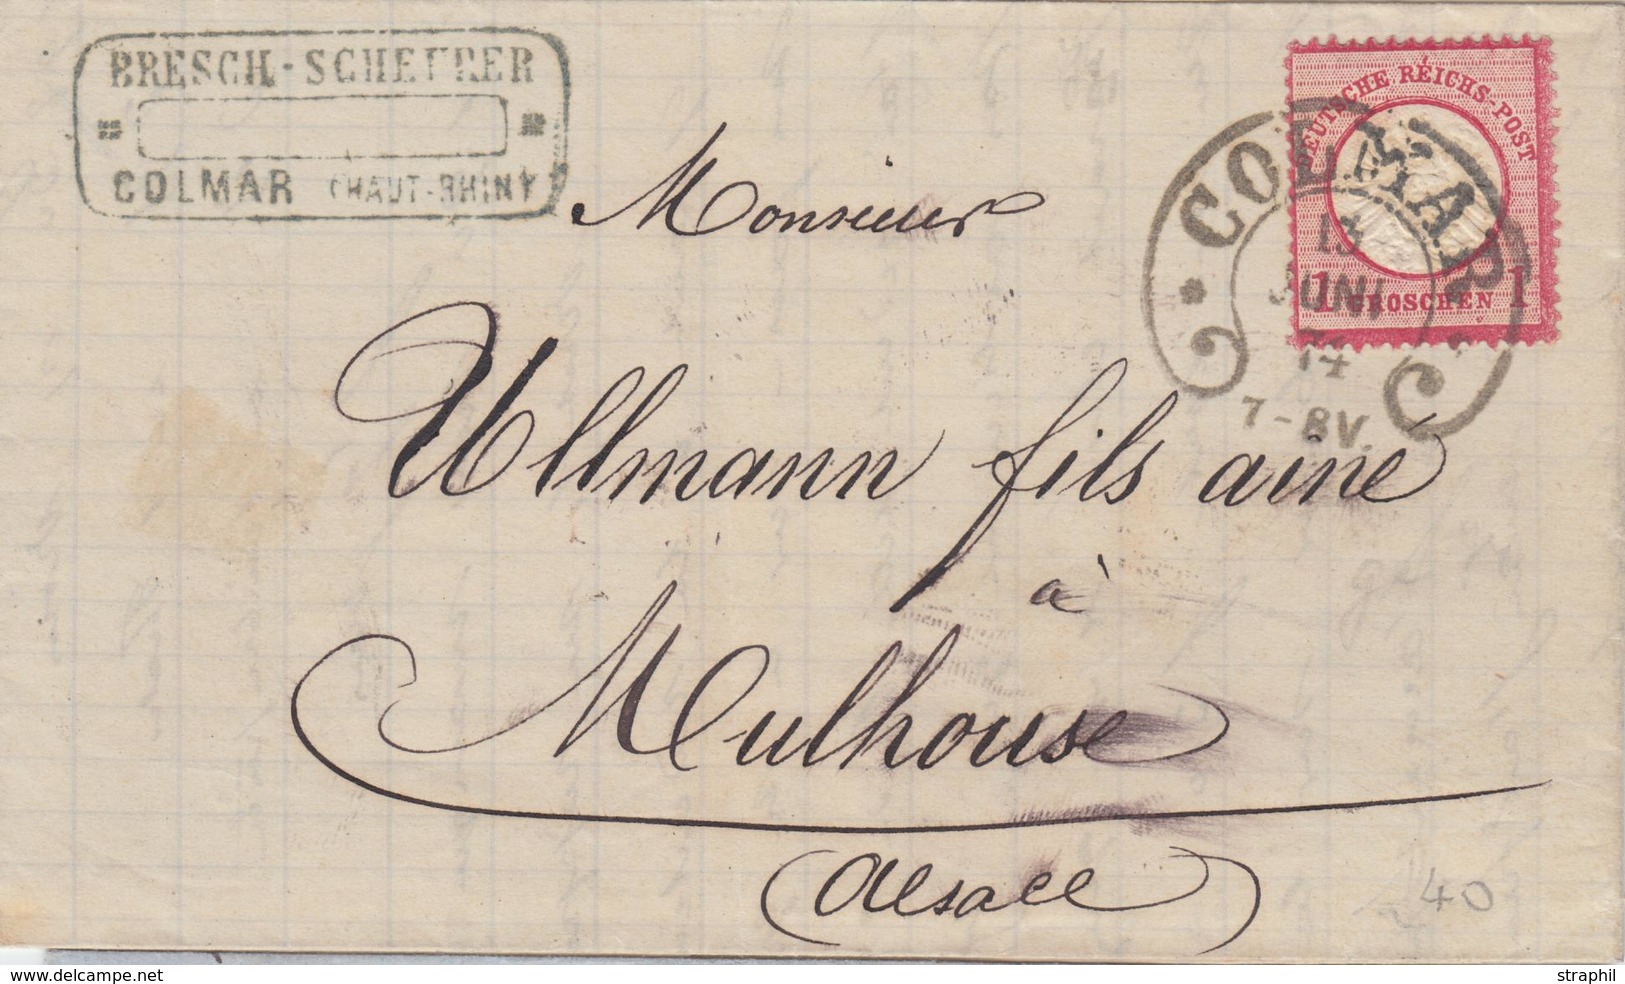 BRESCH-SCHEURER
COLMAR (HAUT-RHIN)
DEUTSCHE REICHS-POST
1 GROSCHEN 1
COLMAR
13
JUNI
74
7-8V.
Monsieur
Ullmann fils ainé
à
Mulhouse
(Alsace)
40
www.delcampe.net
straphil